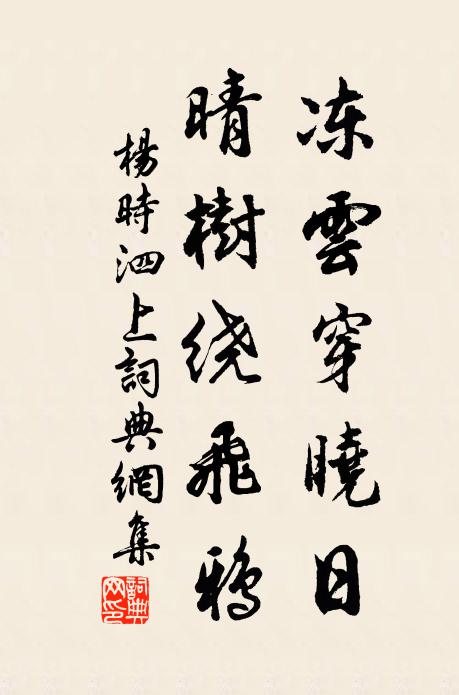 冻雲穿曉日
晴樹绕飛鴉
楊時泗上詞典網集
詞典网印